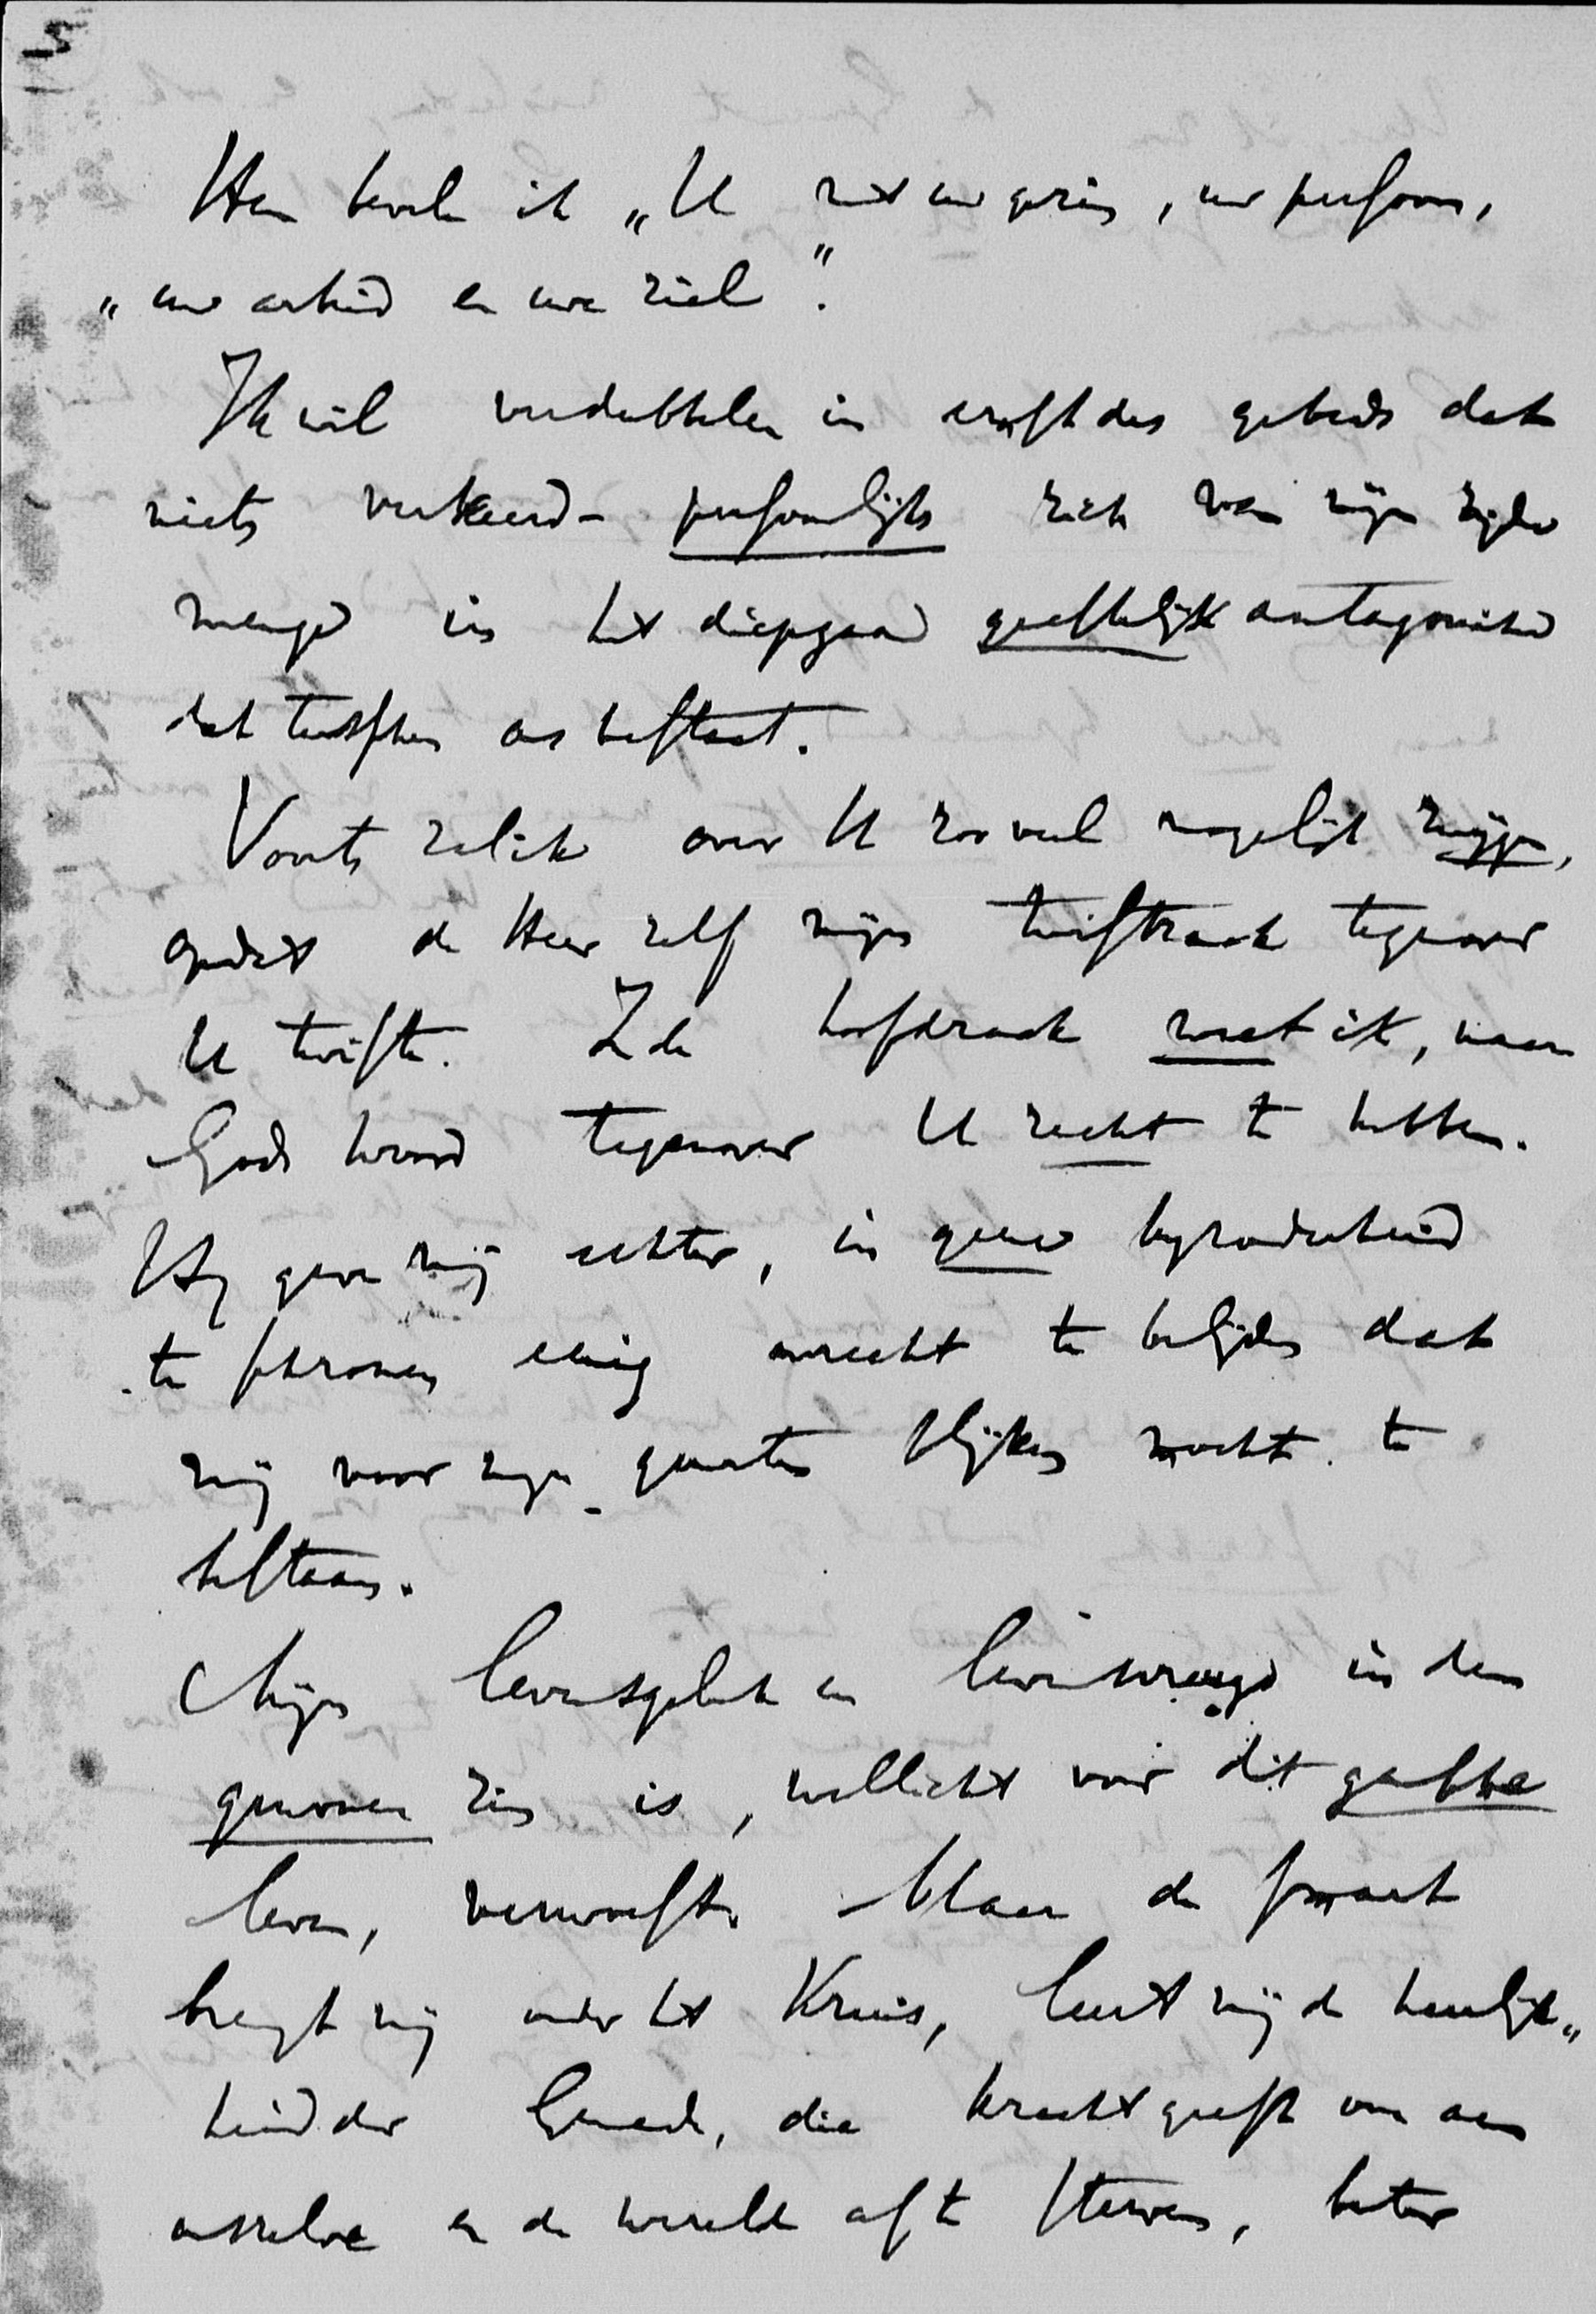 5
Hem beveel ik „U met uw gezin, uw persoon,
„uw arbeid en uwe ziel”.
Ik wil verdubbelen in ernst des gebeds dat
niets verkeerd-persoonlijks zich van mijn zijde
menge in het diepgaand geestelijk antagonisme
dat tusschen ons bestaat.
Voorts zal ik over U zooveel mogelijk zwijgen,
opdat de Heer zelf mijn twistzaak tegenover
U twiste. In de hoofdzaak weet ik, naar
Gods woord tegenover U recht te hebben.
Hij geve mij echter, in geene byzonderheid
te schromen eenig onrecht te belijden dat
mij voor mijn geweten blijken mocht te
bestaan.
Mijn levensgeluk en levensvreugd in den
gewonen zin is, wellicht voor dit gansche
leven, verwoest. Maar de smart
brengt mij onder het Kruis, leert mij de heerlijk„
heid der Genade, die kracht geeft om aan
onszelve en de wereld af te sterven, beter